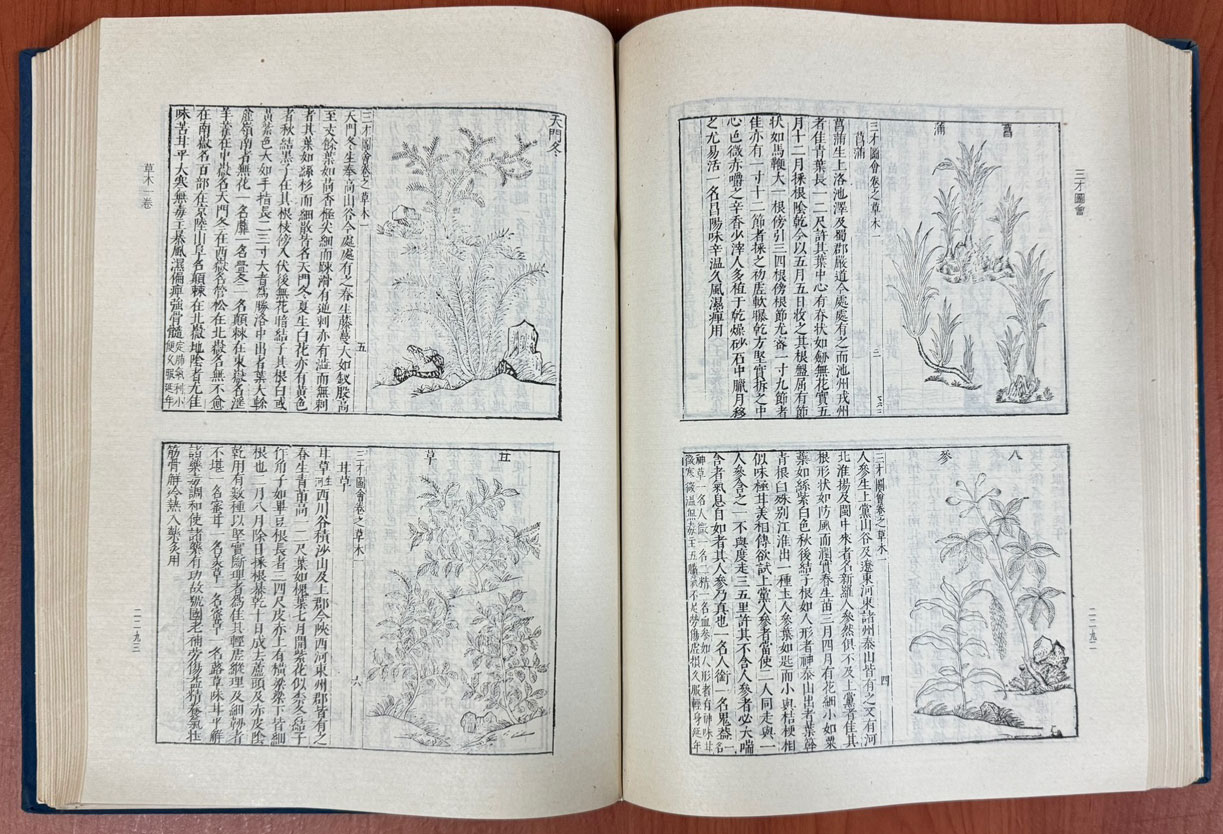 三才圖會
菖
蒲
三才圖會卷之草木一
三
菖蒲
菖蒲生上洛池澤及蜀郡嚴道今處處有之而池州戎州
者佳春生青葉長一二尺許其葉中心有脊狀如劍無花實五
月十二月採根陰乾今以五月五日收之其根盤屈有節
狀如馬鞭大一根傍引三四根傍根節尤密一寸九節者
佳亦有一寸十二節者採之初虛軟曝乾方堅實折之中
心色微赤嚼之辛香少滓人多植于乾燥砂石中臘月移
之尤易活一名昌陽味辛溫久風濕痺用
人
參
三才圖會卷之草木一
四
人參生上黨山谷及遼東河東諸州泰山皆有之又有河
北淮揚及閩中來者名新羅人參然俱不及上黨者佳其
根形狀如防風而潤實春生苗三月四月有花細小如粟
蕊如絲紫白色秋後結子根如人形者神泰山出者葉幹
青根白殊別江淮出一種土人參葉如匙而小與桔梗相
似味極甘美相傳欲試上黨人參者當使二人同走與一
人參含之一不與度走三五里許其不含人參者必大喘
含者氣息自如者其人參乃真也一名人銜一名鬼蓋一名
神草一名人微一名土精一名血參如人形者有神味甘
微寒微溫無毒主五臟氣不足勞傷虛損久服輕身延年
二二九二
天門冬
三才圖會卷之草木一
五
天門冬生奉高山谷今處處有之春生藤蔓大如釵股高
至丈餘葉如茴香極尖細而疎滑有逆刺亦有澁而無刺
者其葉如絲杉而細散皆名天門冬夏生白花亦有黃色
者秋結黑子在其根枝傍入伏後無花暗結子其根白或
黃紫色大如手指長二三寸大者為勝洛中出者葉大幹
麄嶺南者無花一名虋冬一名顛棘在東嶽名淫
羊藿在中嶽名天門冬在西嶽名管松在北嶽名無不愈
在南嶽名百部在京陸山阜名顛棘在北嶽地陰者尤佳
味苦甘平大寒無毒主暴風濕偏痺強骨髓定肺氣利小便久服延年
草木一卷
甘
草
三才圖會卷之草木一
六
甘草
甘草生河西川谷積沙山及上郡今陝西河東州郡皆有之
春生青苗高一二尺葉如槐葉七月開紫花似柰冬結子
作角子如畢豆根長者三四尺皮亦上有橫梁梁下皆細
根也二月八月除日採根暴乾十日成去蘆頭及赤皮陰
乾用有數種以堅實斷理者為佳其輕虛縱理及細韌者
不堪一名蜜甘一名美草一名蜜草一名蕗草味甘平解
諸藥毒調和使諸藥有功故號國老補勞傷虛損養氣壯
筋骨解冷熱入藥炙用
二二九三